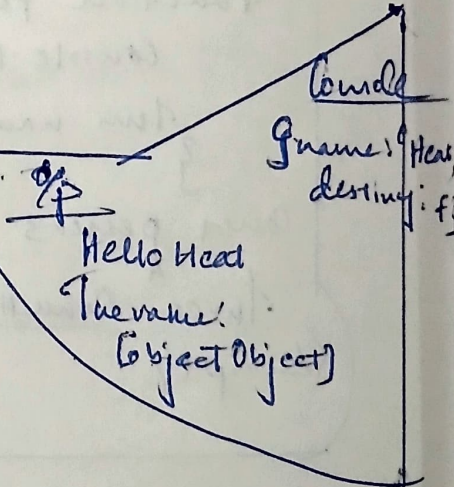 Console
{name: Head
destiny: f
o/p
Hello Head
The value:
[object Object]